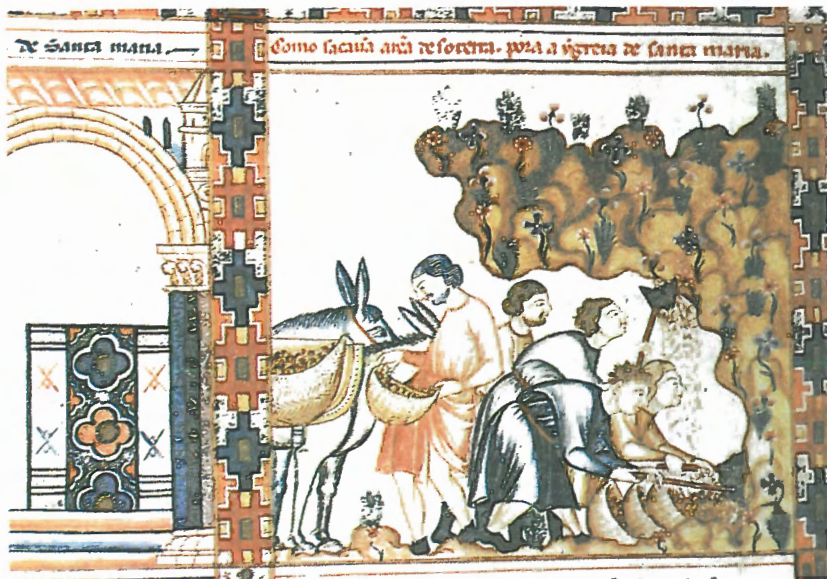 de Santa maria.
Como sacauã arẽa de soterra. pora a ygreia de santa maria.